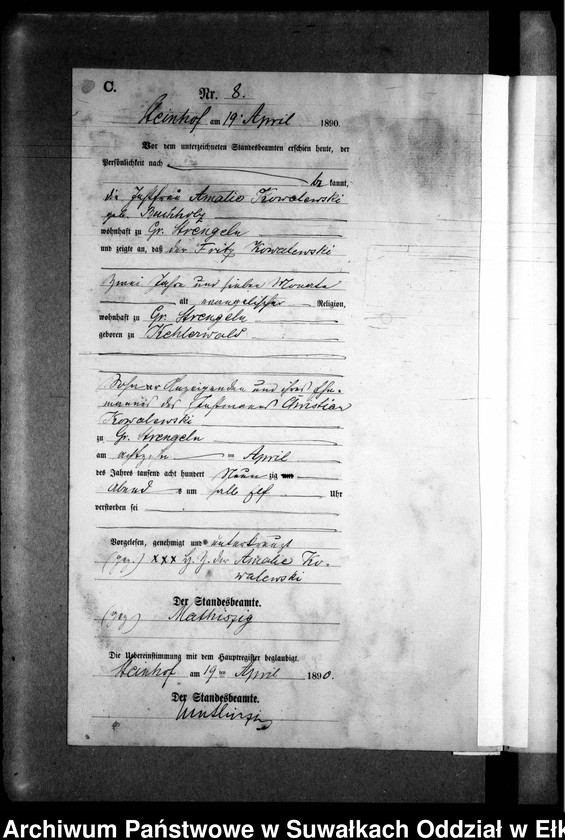 C.
Nr. 8.
Steinhof am 19. April 1890.
Vor dem unterzeichneten Standesbeamten erschien heute, der
Persönlichkeit nach
be kannt,
die Instfrau Amalie Kowalewski
geb. Buchholz
wohnhaft zu Gr. Strengeln
und zeigte an, daß der Fritz Kowalewski
zwei Jahre und sieben Monate
alt evangelischer Religion,
wohnhaft zu Gr. Strengeln
geboren zu Kehlerwald
Sohn der Anzeigenden und ihres Ehe-
mannes des Instmanns Christian
Kowalewski
zu Gr. Strengeln
am achtzehn ten April
des Jahres tausend acht hundert Neun zig
Abend s um halb elf Uhr
verstorben sei
Vorgelesen, genehmigt und unterkreuzt
(gez.) xxx Hz. der Amalie Ko-
walewski
Der Standesbeamte.
(gez) Mathiszig
Die Uebereinstimmung mit dem Hauptregister beglaubigt.
Steinhof am 19 ten April 1890.
Der Standesbeamte.
Mathiszig
Archiwum Państwowe w Suwałkach Oddział w Ełk